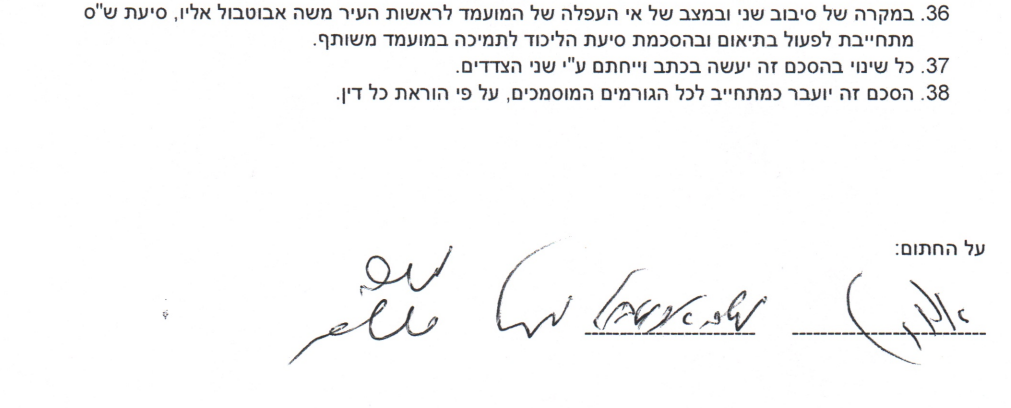 36. במקרה של סיבוב שני ובמצב של אי העפלה של המועמד לראשות העיר משה אבוטבול אליו, סיעת ש"ס
מתחייבת לפעול בתיאום ובהסכמת סיעת הליכוד לתמיכה במועמד משותף.
37. כל שינוי בהסכם זה יעשה בכתב וייחתם ע"י שני הצדדים.
38. הסכם זה יועבר כמתחייב לכל הגורמים המוסמכים, על פי הוראת כל דין.
על החתום: